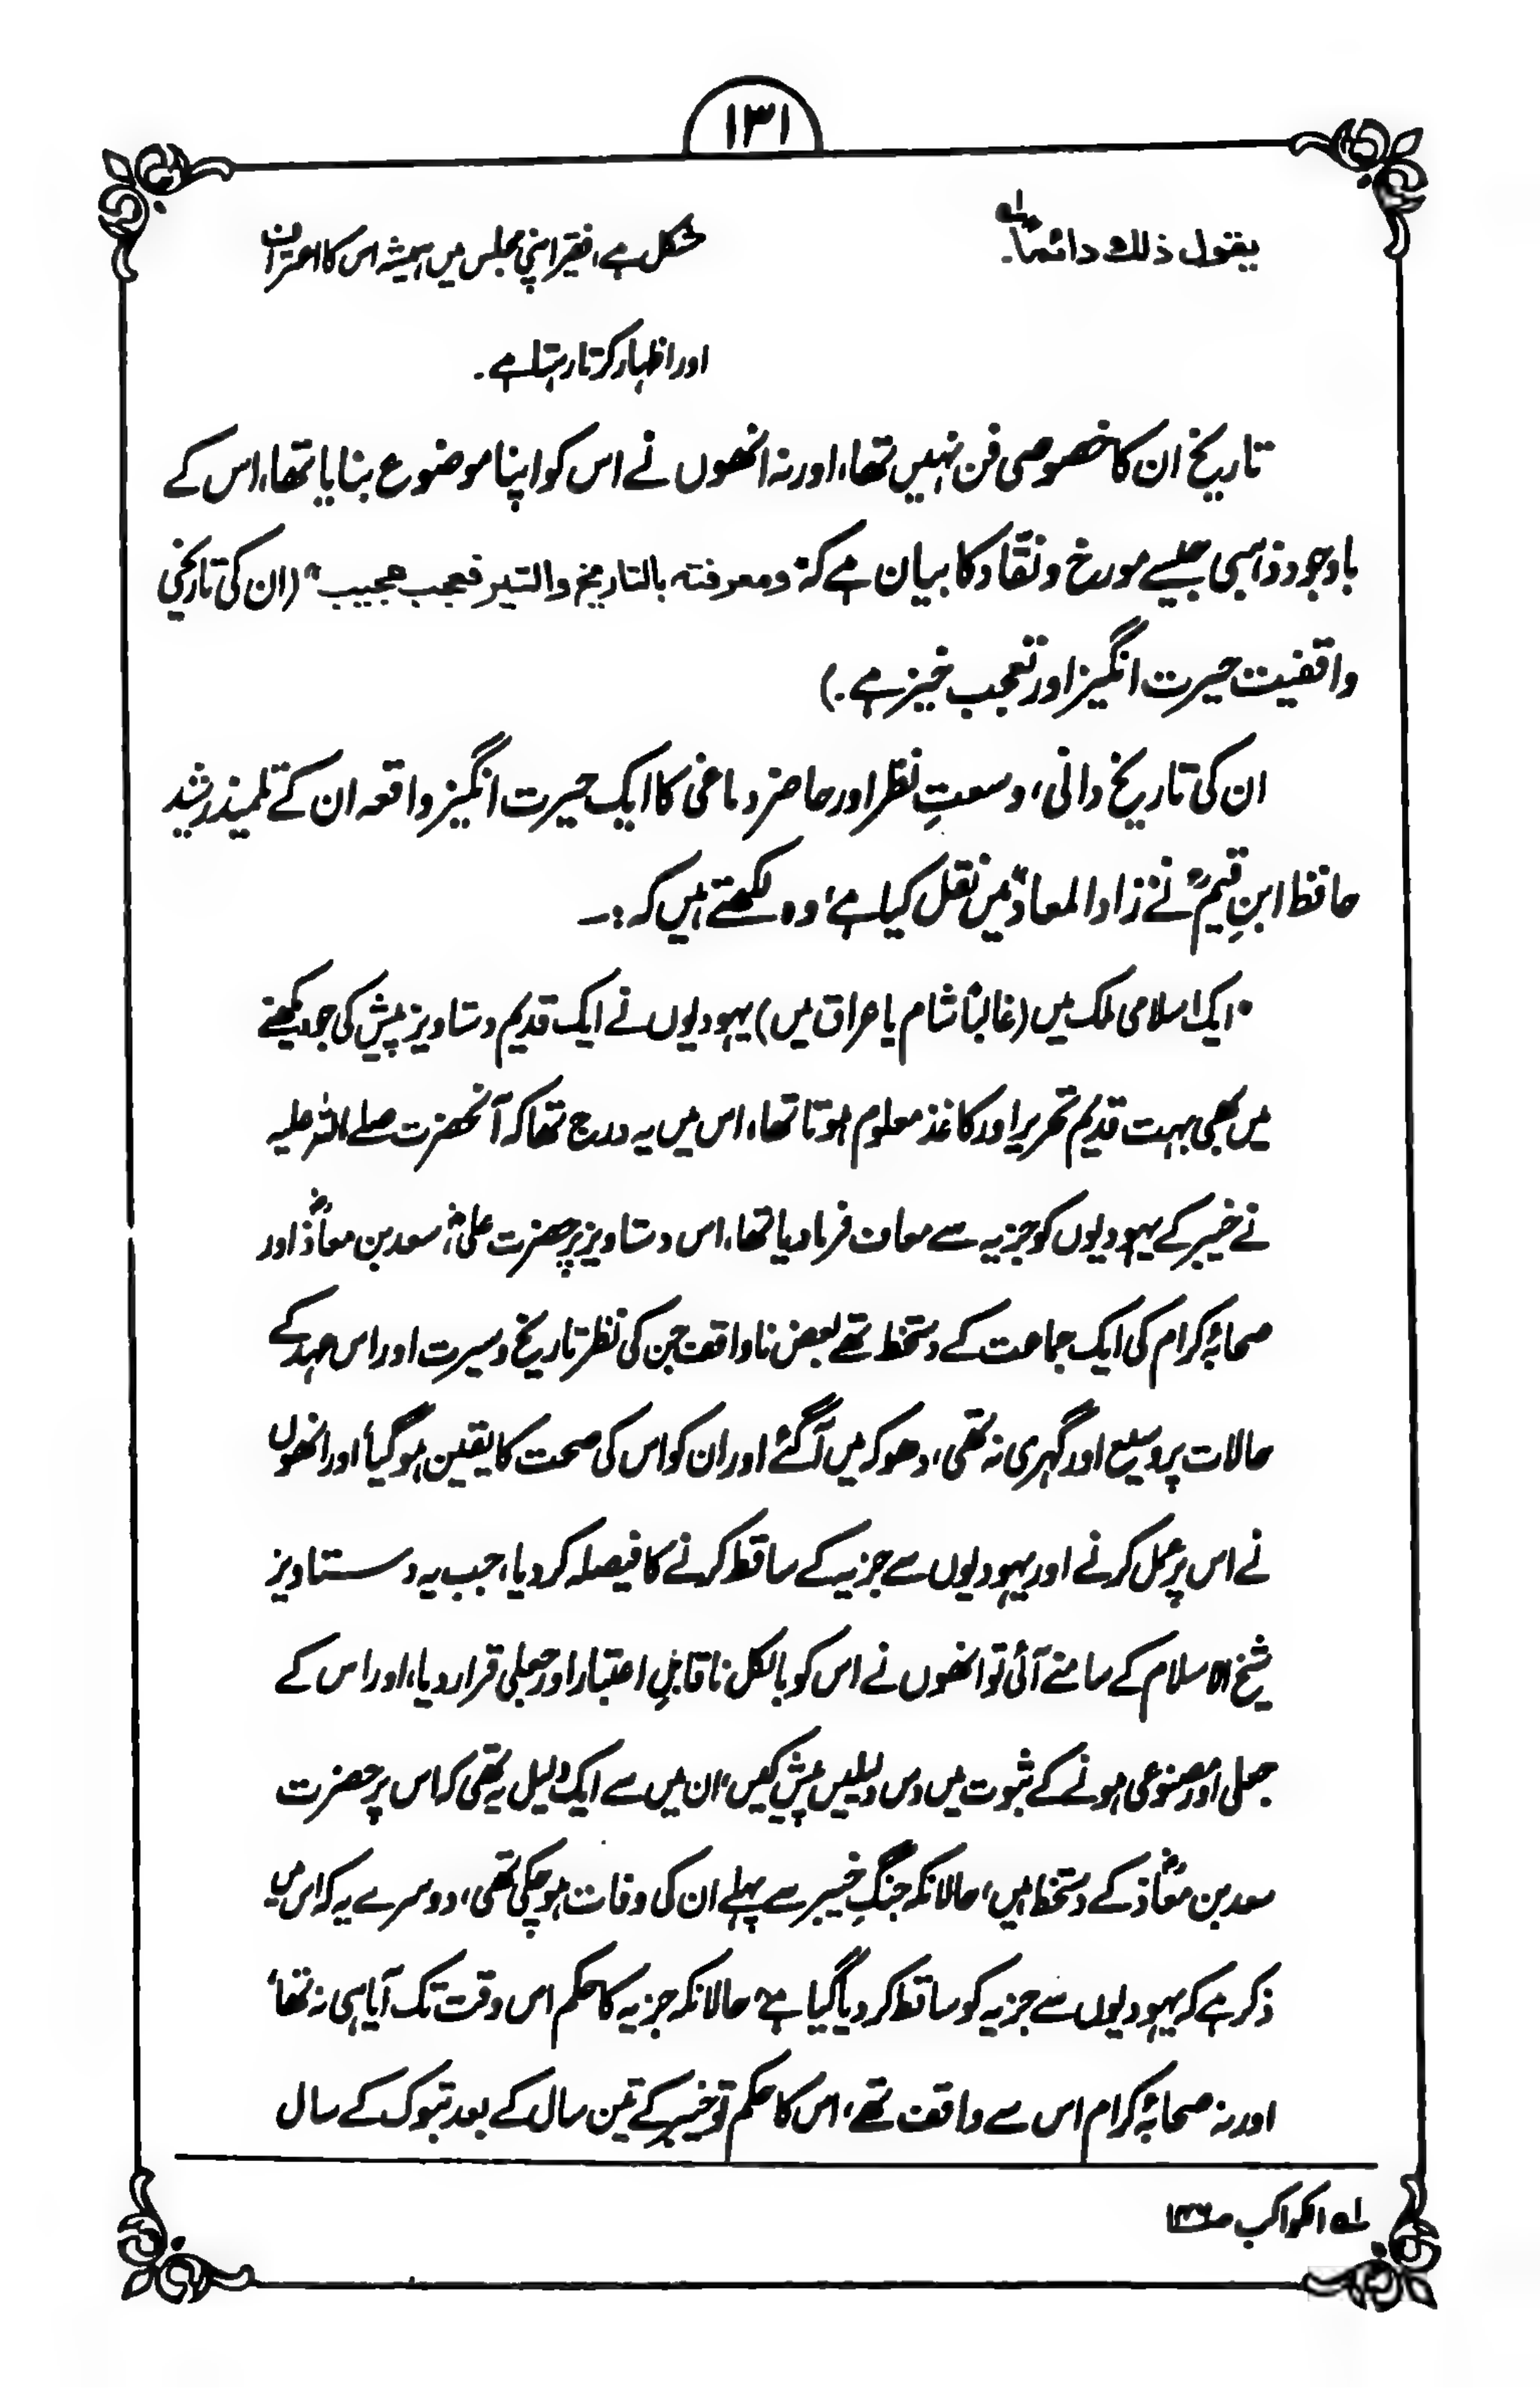 ۱۳۱
یقول ذلك دائمًا۔لہ
مشکل ہے، فقیر اپنی مجلس میں ہمیشہ اس کا اعتراف
اور اظہار کرتا رہتا ہے۔
تاریخ ان کا خصوصی فن نہیں تھا، اور نہ انھوں نے اس کو اپنا موضوع بنایا تھا، اس کے
باوجود ذہبی جیسے مورخ و نقاد کا بیان ہے کہ "ومعرفته بالتاريخ والسير فعجب عجيب" (ان کی تاریخی
واقفیت حیرت انگیز اور تعجب خیز ہے۔)
ان کی تاریخ دانی، وسعتِ نظر اور حاضر دماغی کا ایک حیرت انگیز واقعہ ان کے تلمیذ رشید
حافظ ابنِ قیمؒ نے "زاد المعاد" میں نقل کیا ہے، وہ لکھتے ہیں کہ:۔
"ایک اسلامی ملک میں (غالباً شام یا عراق میں) یہودیوں نے ایک قدیم دستاویز پیش کی جو دیکھنے
میں بھی بہت قدیم تحریر اور کاغذ معلوم ہوتا تھا، اس میں یہ درج تھا کہ آنحضرت صلے اللہ علیہ
نے خیبر کے یہودیوں کو جزیہ سے معاف فرما دیا تھا، اس دستاویز پر حضرت علیؓ، سعد بن معاذؓ اور
صحابۂ کرام کی ایک جماعت کے دستخط تھے بعض ناواقف جن کی نظر تاریخ و سیرت اور اس عہد کے
حالات پر وسیع اور گہری نہ تھی، دھوکہ میں آگئے اور ان کو اس کی صحت کا یقین ہو گیا، اور انھوں
نے اس پر عمل کرنے اور یہودیوں سے جزیہ کے ساقط کرنے کا فیصلہ کر دیا، جب یہ دستاویز
شیخ الاسلام کے سامنے آئی تو انھوں نے اس کو بالکل ناقابلِ اعتبار اور جعلی قرار دیا، اور اس کے
جعلی اور مصنوعی ہونے کے ثبوت میں دس دلیلیں پیش کیں، ان میں سے ایک دلیل یہ تھی کہ اس پر حضرت
سعد بن معاذؓ کے دستخط ہیں، حالانکہ جنگِ خیبر سے پہلے ان کی وفات ہو چکی تھی، دوسرے یہ کہ اس میں
ذکر ہے کہ یہودیوں سے جزیہ کو ساقط کر دیا گیا ہے، حالانکہ جزیہ کا حکم اس وقت تک آیا ہی نہ تھا،
اور نہ صحابۂ کرام اس سے واقف تھے، اس کا حکم تو خیبر کے تین سال کے بعد تبوک کے سال
لہ الکواکب ص